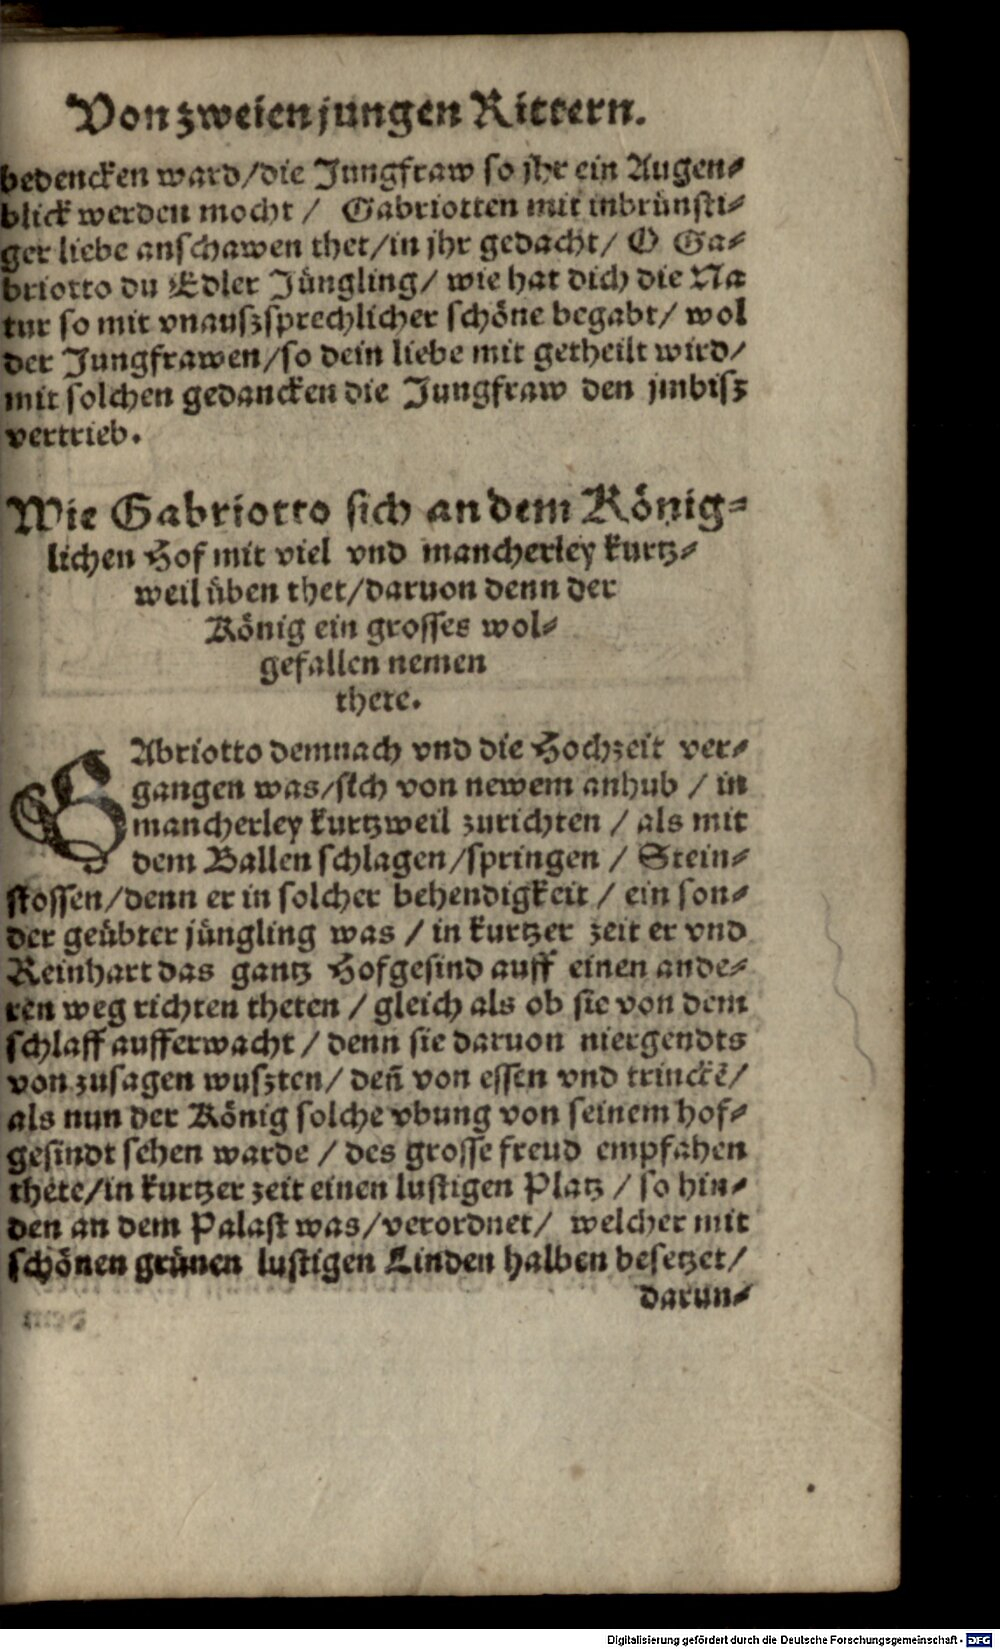 Von zweien jungen Rittern.
bedencken ward/die Jungfraw so jhr ein Augen-
blick werden mocht / Gabriotten mit inbrünsti-
ger liebe anschawen thet/in jhr gedacht/ O Ga-
briotto du Edler Jüngling/ wie hat dich die Na
tur so mit vnauszsprechlicher schöne begabt/ wol
der Jungfrawen/so dein liebe mit getheilt wird/
mit solchen gedancken die Jungfraw den jmbisz
vertrieb.
Wie Gabriotto sich an dem König-
lichen Hof mit viel vnd mancherley kurtz-
weil üben thet/daruon denn der
König ein grosses wol-
gefallen nemen
thete.
GAbriotto demnach vnd die Hochzeit ver-
gangen was/sich von newem anhub / in
mancherley kurtzweil zurichten / als mit
dem Ballen schlagen/springen / Stein-
stossen/denn er in solcher behendigkeit / ein son-
der geübter jüngling was / in kurtzer zeit er vnd
Reinhart das gantz Hofgesind auff einen ande-
ren weg richten theten / gleich als ob sie von dem
schlaff aufferwacht / denn sie daruon niergendts
von zusagen wuszten/ den̄ von essen vnd trinckē/
als nun der König solche vbung von seinem hof-
gesindt sehen warde / des grosse freud empfahen
thete/in kurtzer zeit einen lustigen Platz / so hin-
den an dem Palast was/verordnet/ welcher mit
schönen grünen lustigen Linden halben besetzet/
darun-
Digitalisierung gefördert durch die Deutsche Forschungsgemeinschaft - DFG